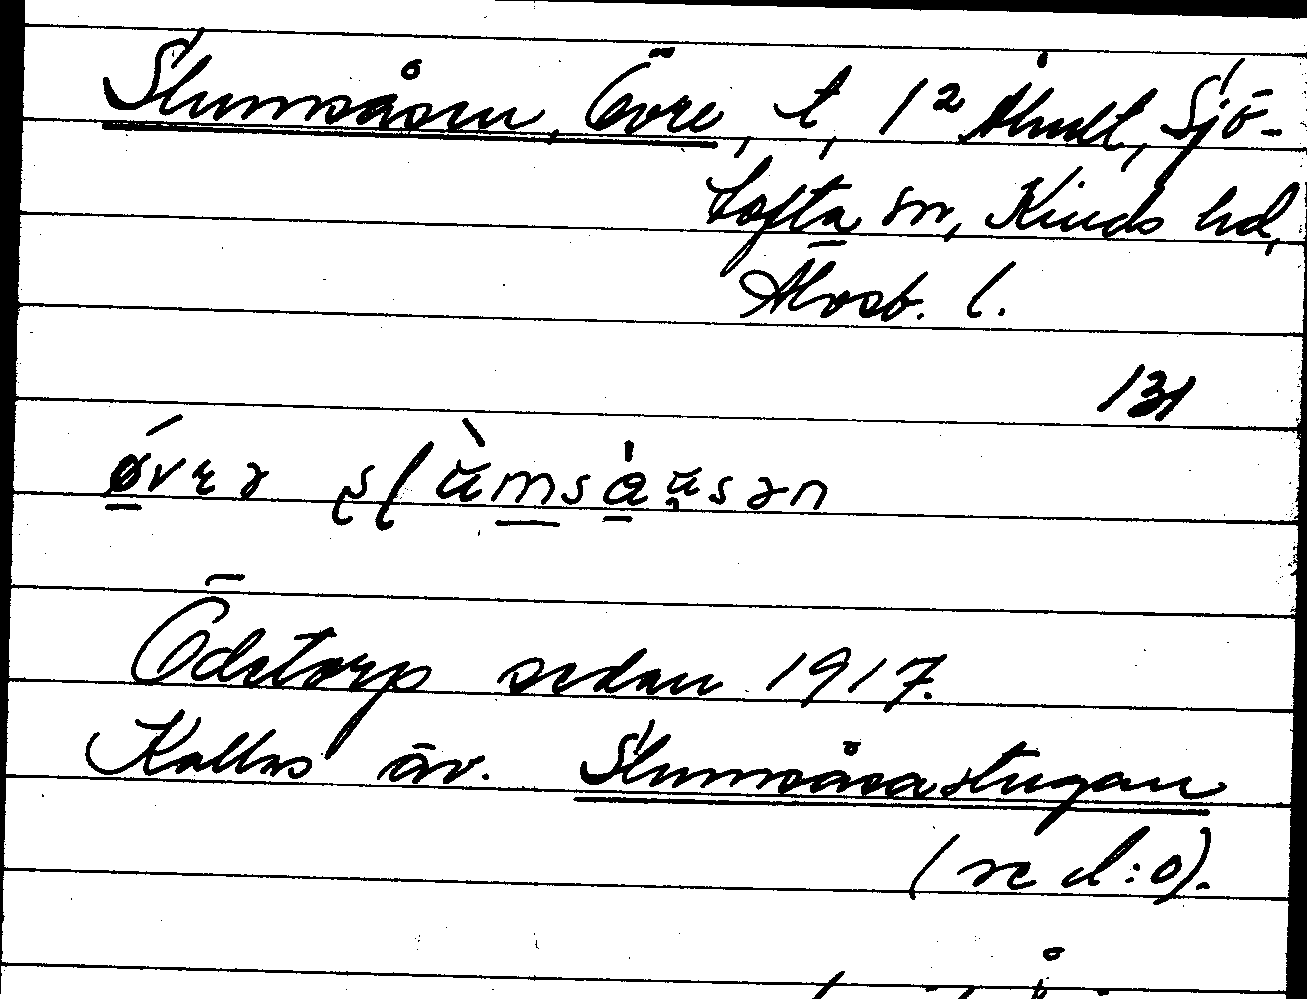 Slumsåsen, Övre, t, 1² Älmult, Sjö-
tofta sn, Kinds hd,
Älvsb. l.
131
Ödetorp sedan 1917.
Kallas äv. Slumsåsastugan
(se d:o).